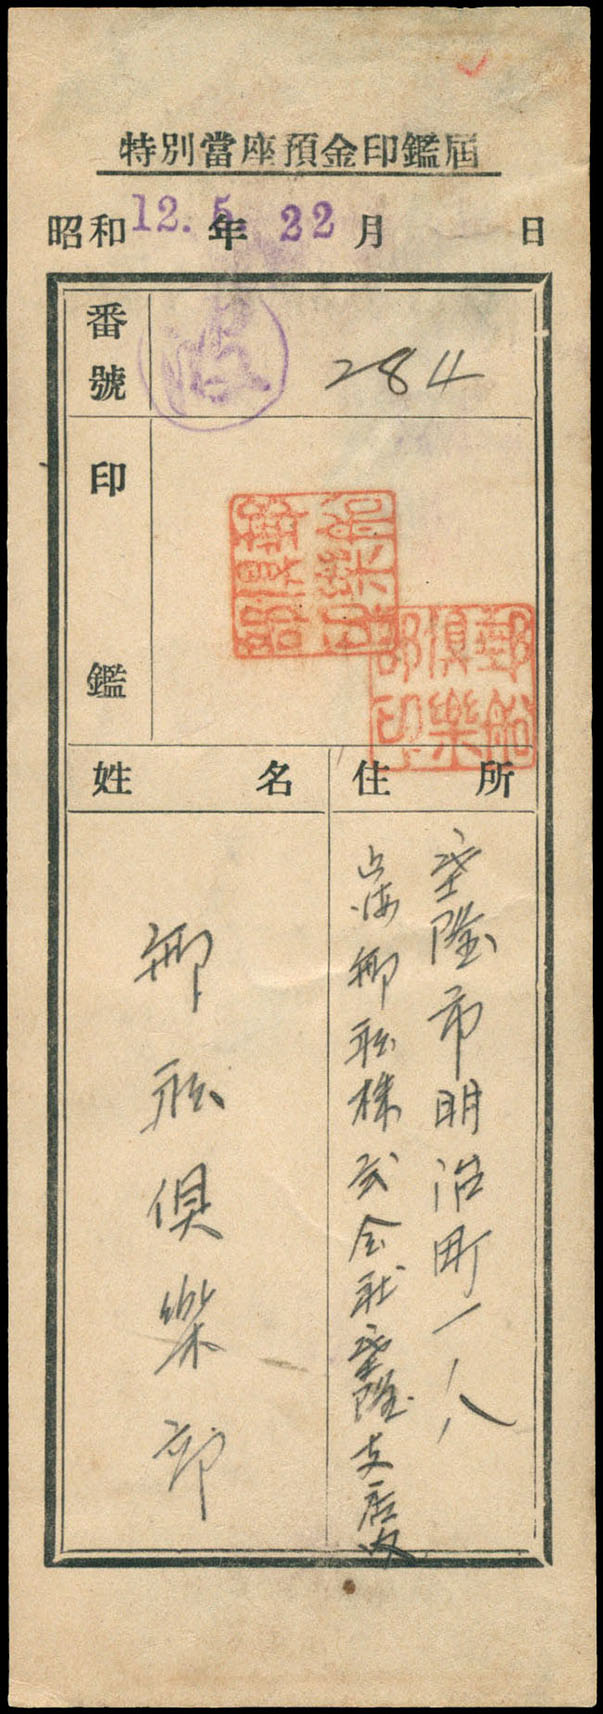 特別當座預金印鑑屆
昭和12.5.22年 月 日
番號
284
印鑑
郵船
俱樂
部印
住所
基隆市明治町一ノ八
郵船株式会社基隆支店内
姓名
郵船俱樂部